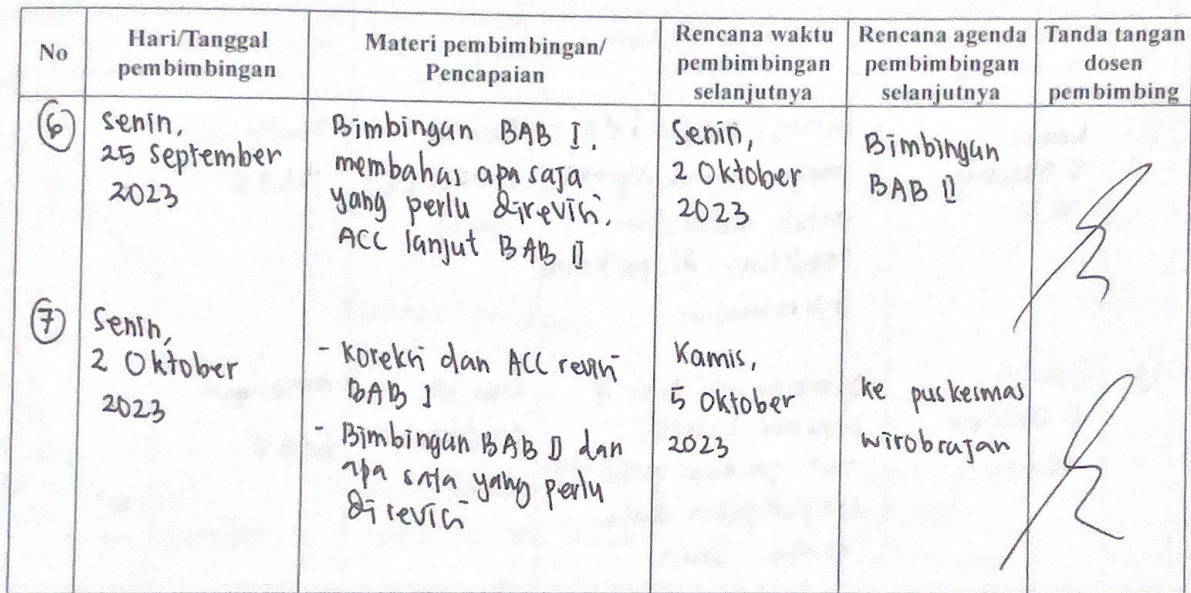 No
Hari/Tanggal
pembimbingan
Materi pembimbingan/
Pencapaian
Rencana waktu
pembimbingan
selanjutnya
Rencana agenda
pembimbingan
selanjutnya
Tanda tangan
dosen
pembimbing
6
Senin,
25 September
2023
Bimbingan BAB I.
membahas apa saja
yang perlu direvisi.
ACC lanjut BAB II
Senin,
2 Oktober
2023
Bimbingan
BAB II
7
Senin,
2 Oktober
2023
- Koreksi dan ACC revisi
BAB I
- Bimbingan BAB II dan
apa saja yang perlu
direvisi
Kamis,
5 Oktober
2023
ke puskesmas
wirobrajan